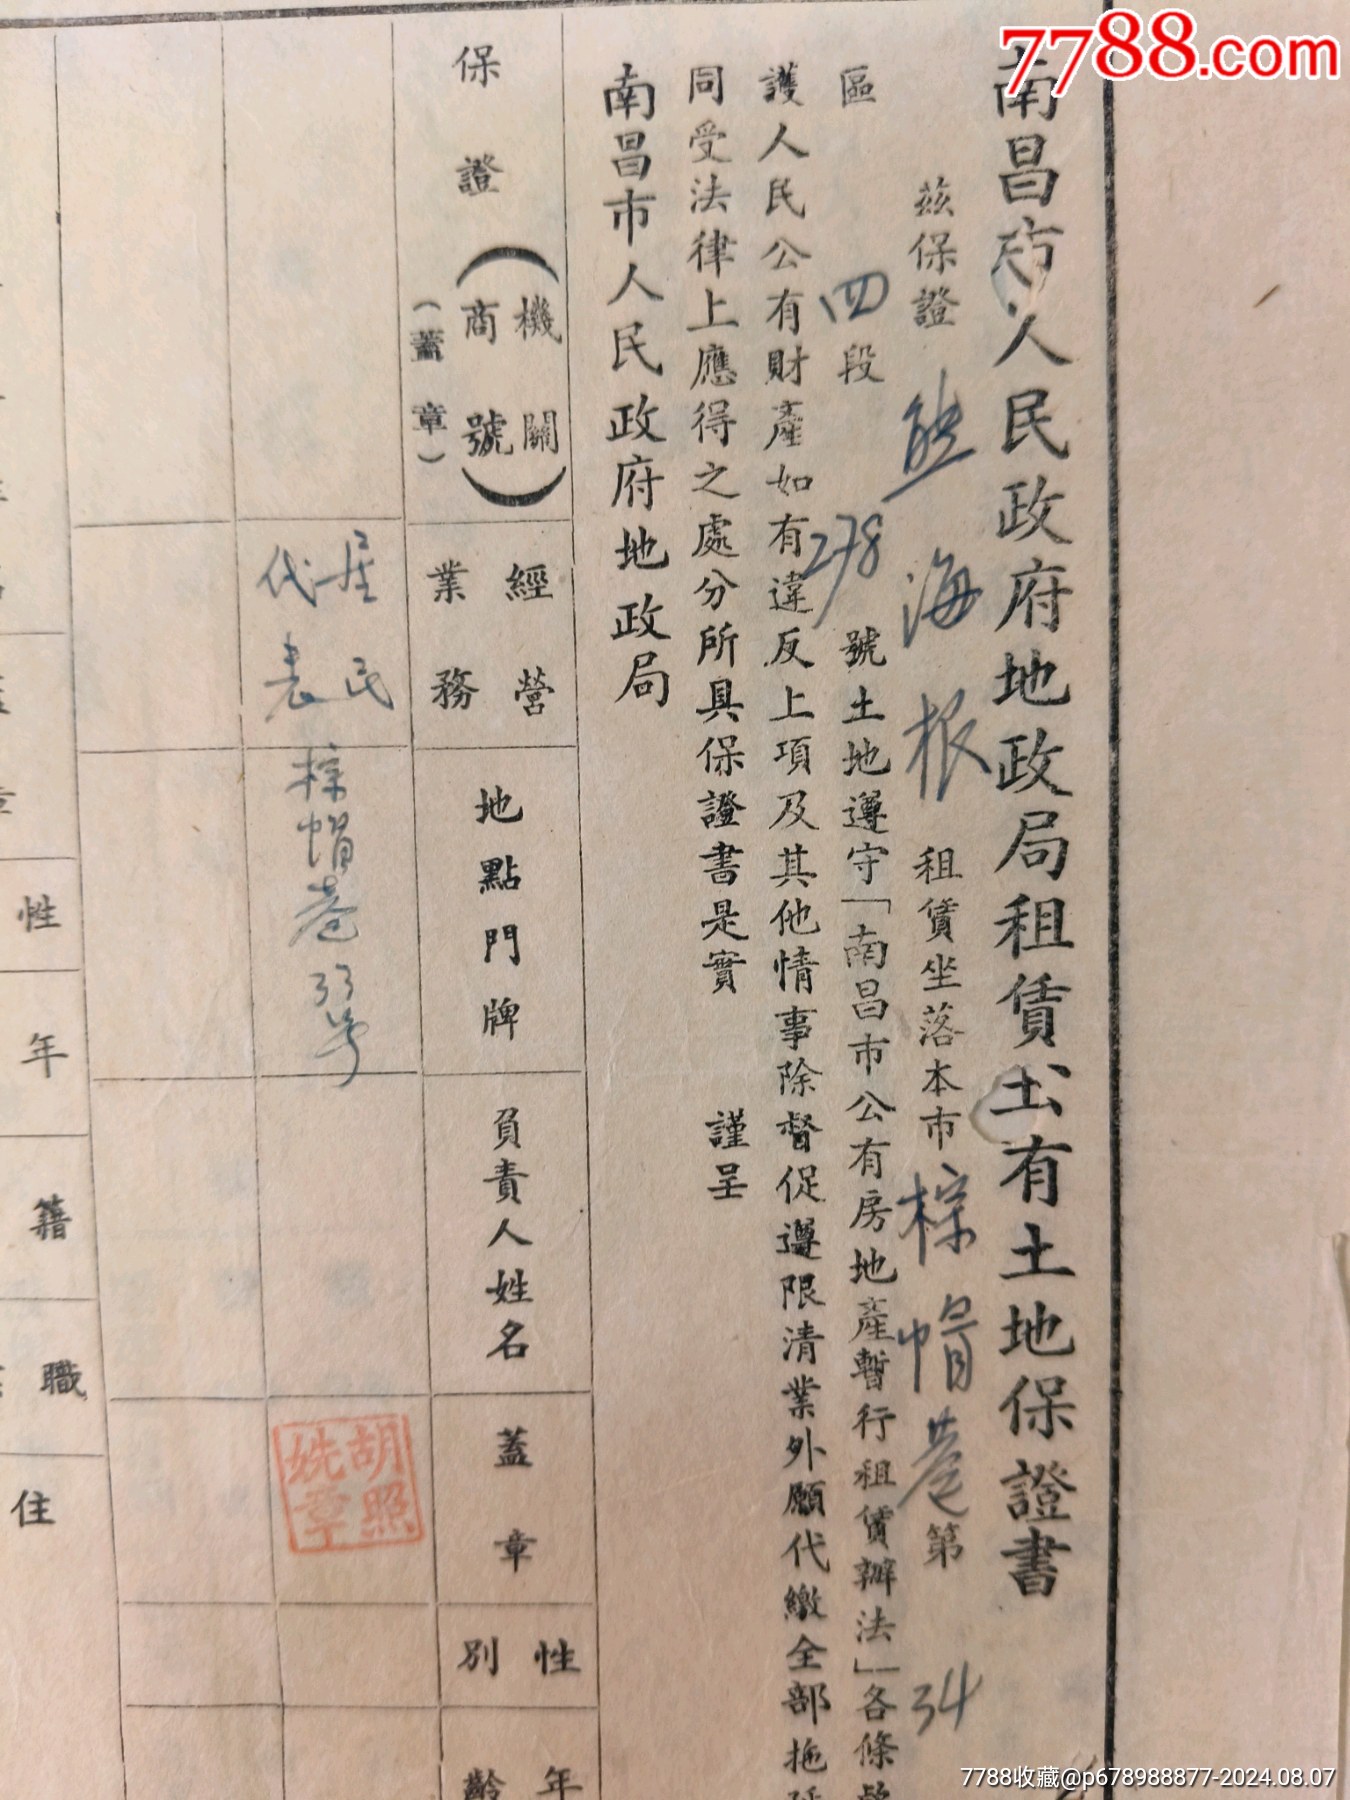 7788.com
南昌市人民政府地政局租賃公有土地保證書
茲保證 熊海根 租賃坐落本市 棕帽巷 第 34
區 四 段 278 號土地遵守「南昌市公有房地產暫行租賃辦法」各條
護人民公有財產如有違反上項及其他情事除督促遵限清業外願代繳全部拖
同受法律上應得之處分所具保證書是實 謹呈
南昌市人民政府地政局
保證(機關商號)(蓋章)
經營業務
地點門牌
負責人姓名
蓋章
性別
年齡
居民代表
棕帽巷33号
胡照
章
性
年
籍
職
住
7788收藏@p678988877-2024.08.07